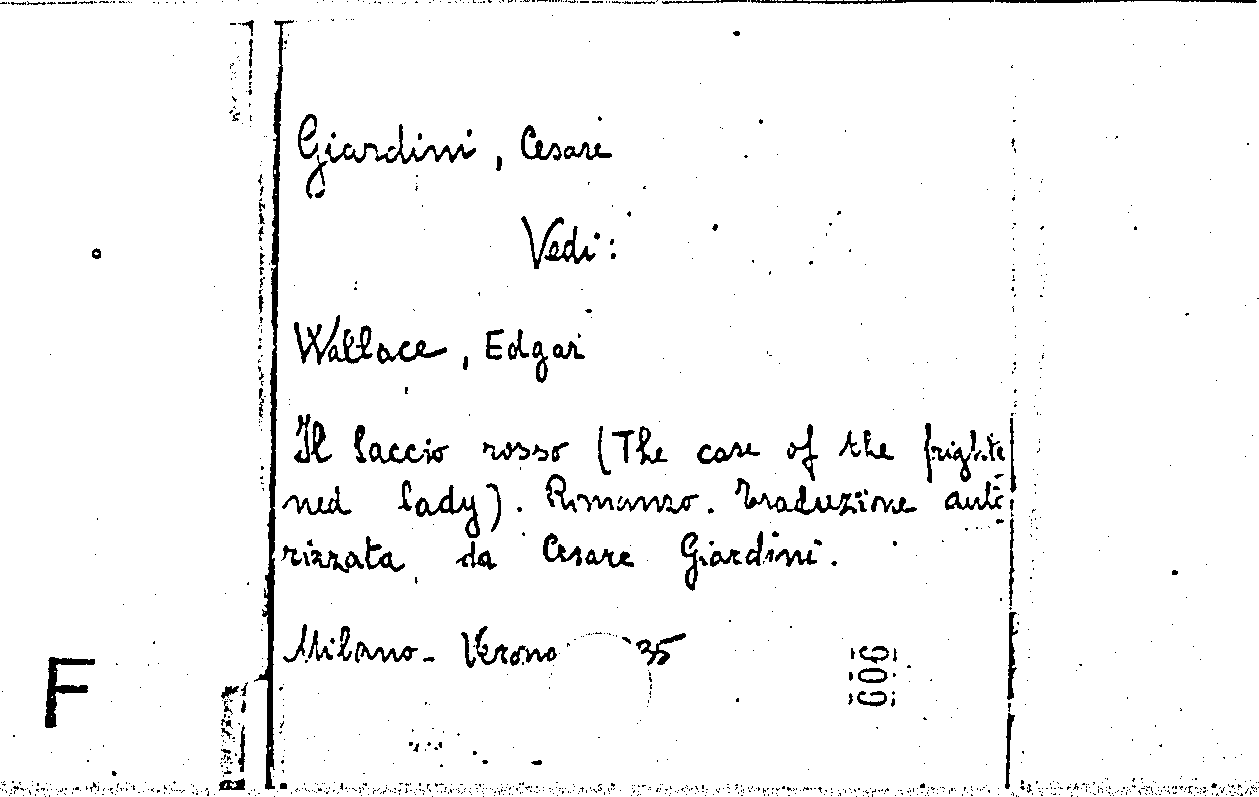 Giardini, Cesare
Vedi:
Wallace, Edgar
Il laccio rosso (The case of the frighte
ned lady). Romanzo. Traduzione auto
rizzata da Cesare Giardini.
Milano - Verona 35
606
F